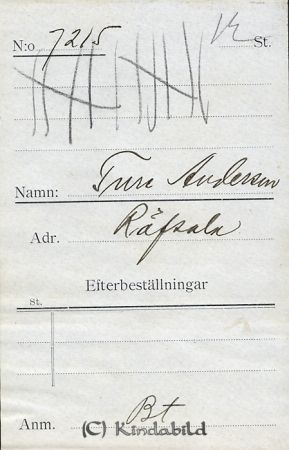 N:o 7215 12 St.
Namn: Ture Andersson
Adr. Räfsala
Efterbeställningar
St.
Anm. Bt
(C) Kindabild